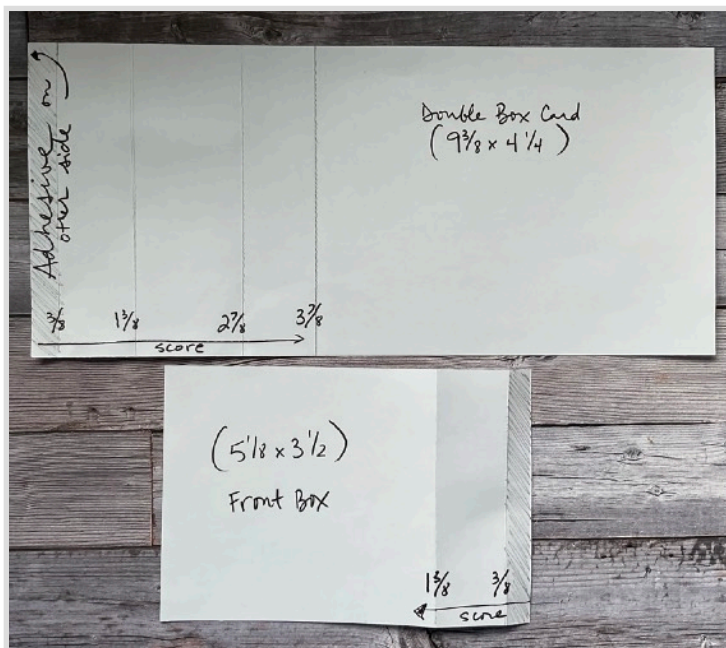 Adhesive on
other side
Double Box Card
(9 3/8 x 4 1/4)
3/8 1 3/8 2 7/8 3 7/8
score
(5 1/8 x 3 1/2)
Front Box
1 3/8 3/8
score